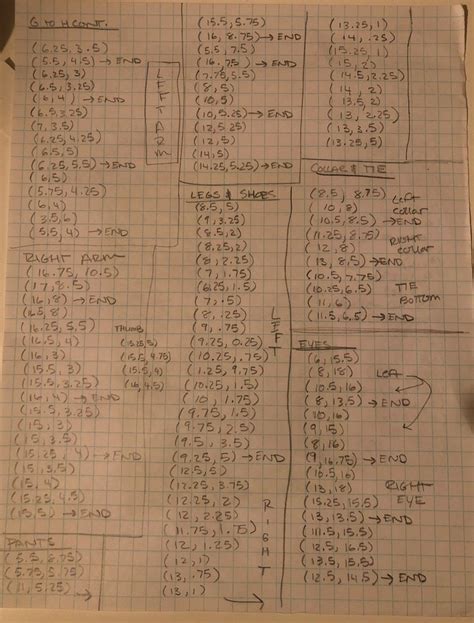 G to H CONT.
(6.25, 3.5)
(5.5, 4.5) → END
(6.25, 3)
(6.5, 3.25)
(6, 4) → END
(6.5, 3.25)
(7, 3.5)
(6.25, 4.25)
(6.5, 5)
(6.25, 5.5) → END
(6, 5)
(5.75, 4.25)
(6, 4)
(5.5, 4) → END
LEFT ARM
RIGHT ARM
(16.75, 10.5)
(17, 8.5)
(16, 8) → END
(16.5, 8)
(16.25, 5.5)
(16.5, 4)
(16, 3)
(15.5, 3)
(15.5, 3.25)
(16, 4) → END
(15.5, 3.25)
(15, 3)
(15, 3.5)
(15.25, 4) → END
(15, 3.5)
(15, 4)
(15.25, 4.5)
(15, 5) → END
THUMB
(15.25, 5)
(15.5, 4.75)
(15.5, 4)
(16, 4.5)
PANTS
(5.5, 8.75)
(5.75, 5.75)
(11, 5.25) →
(15.5, 5.75)
(16, 8.75) → END
(5.5, 7.5)
(16, 75) → END
(7.75, 5.5)
(8, 5)
(10, 5)
(10, 5.25) → END
(12, 5.25)
(12, 5)
(14, 5)
(14.25, 5.25) → END
LEGS & SHOES
(8.5, 5)
(9, 3.25)
(8.5, 2)
(8.25, 2)
(8, 2.25)
(7, 1.75)
(6.25, 1.5)
(7, .5)
(8, .25)
(9, .75)
(9.25, 0.25)
(10.25, .75)
(1.25, 9.75)
(10.25, 1.5)
(10, 1.75)
(9.75, 1.5)
(9.75, 2.5)
(9.5, 3.5)
(9.25, 5) → END
LEFT
(12.5, 5)
(12.25, 3.75)
(12.25, 2)
(12, 2.25)
(11.75, 1.75)
(12, 1.25)
(12, 1)
(13, .75)
(13, 1)
RIGHT →
(13.25, 1)
(14, .25)
(15.25, 1)
(15, 2)
(14.5, 2.25)
(14, 2)
(13.5, 2)
(13, 2.25)
(13, 3.5)
(13.25, 5)
COLLAR & TIE
(8.5, 8.75)
(10, 8)
(10.5, 8.5) → END
Left collar
(11.25, 8.75)
(12, 8)
(13, 8.5) → END
RIGHT collar
(10.5, 7.75)
(10.25, 6.5)
(11, 6)
(11.5, 6.5) → END
TIE BOTTOM
EYES
(6, 15.5)
(8, 18)
(10.5, 16)
(8, 13.5) → END
Left
(10, 16)
(9, 15)
(8, 16)
(9, 16.75) → END
(10.5, 16)
(13, 18)
(15.25, 15.5)
(13, 13.5) → END
RIGHT EYE
(11.5, 15.5)
(12.5, 16.5)
(13.5, 15.5)
(12.5, 14.5) → END